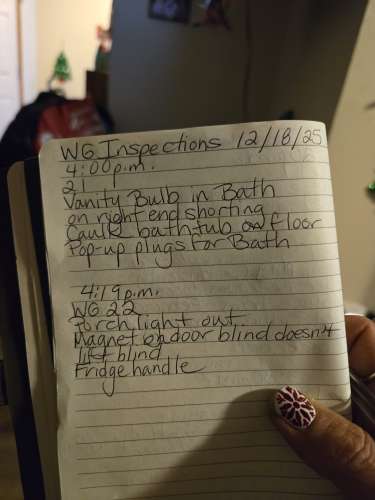 WG Inspections 12/18/25
4:00p.m.
21
Vanity Bulb in Bath
on right end shorting
Caulk bath-tub on floor
Pop-up plugs for Bath
4:19p.m.
WG 22
Porch light out
Magnet on door blind doesn't
lift blind
Fridge handle